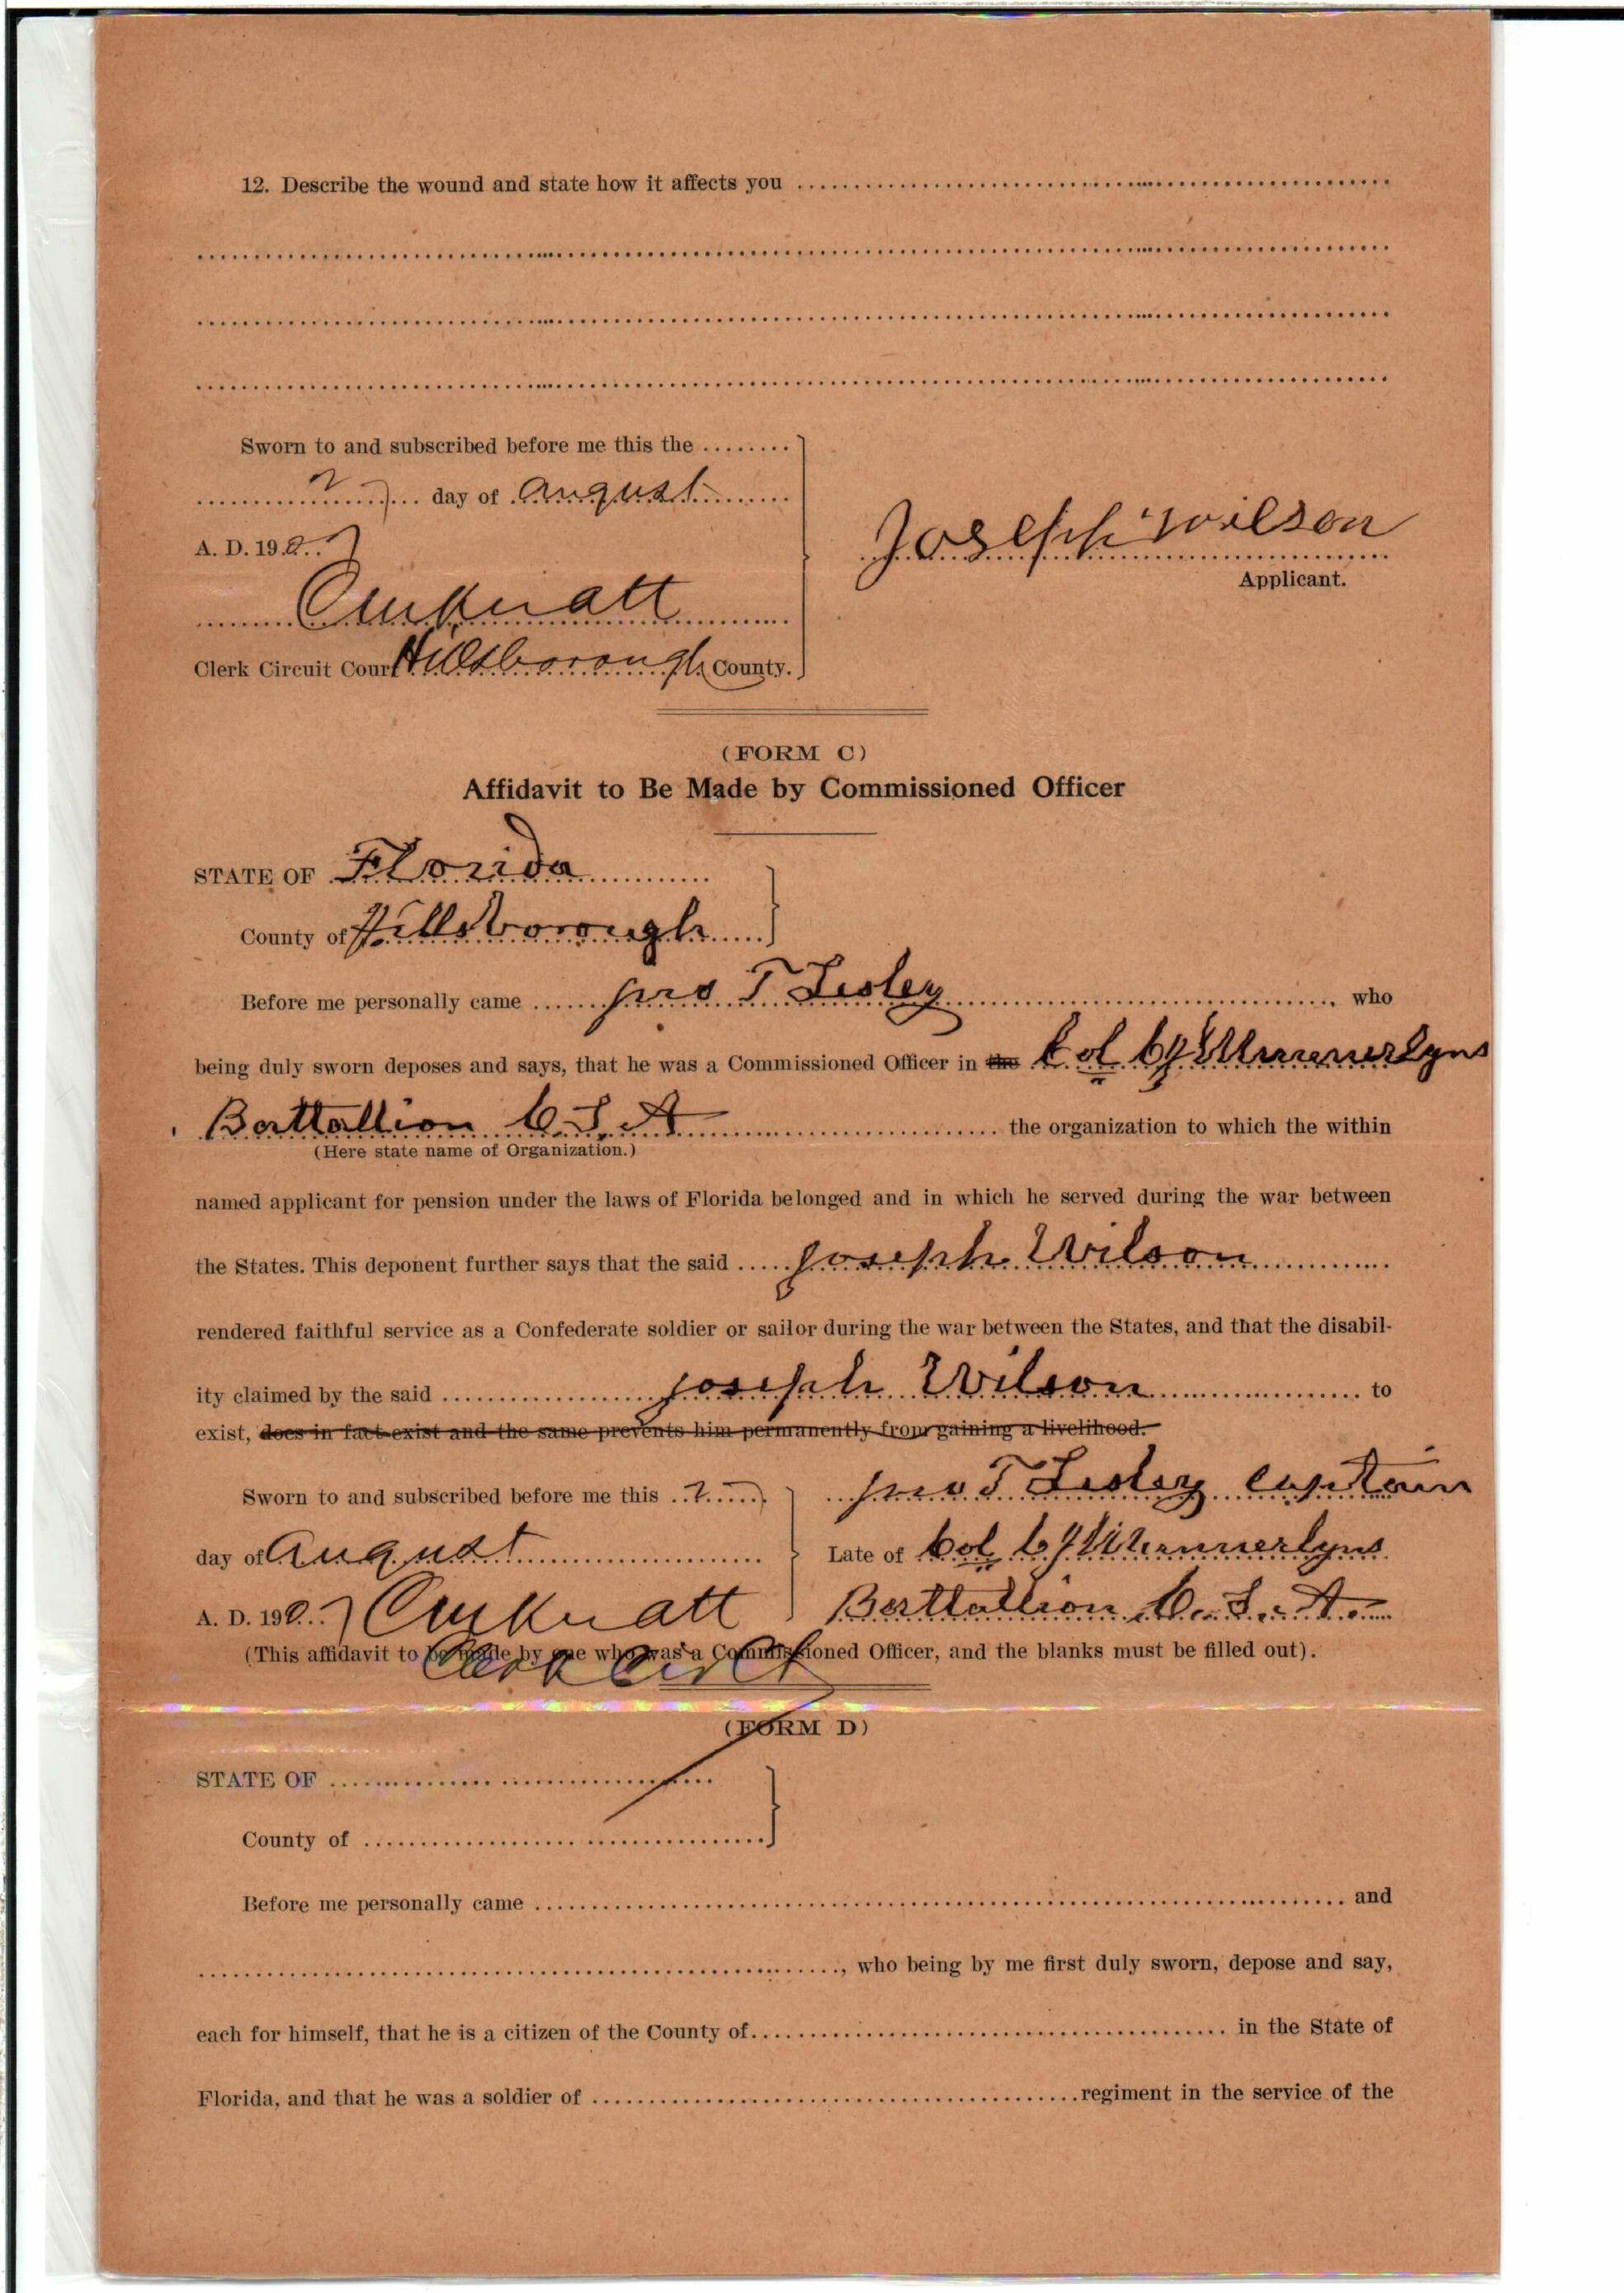 12. Describe the wound and state how it affects you
Sworn to and subscribed before me this the
2 day of August
A. D. 1907
Joseph Wilson
Applicant.
Clerk Circuit Court Hillsborough County.
(FORM C)
Affidavit to Be Made by Commissioned Officer
STATE OF Florida
County of Hillsborough
Before me personally came Jno T Lesley, who
being duly sworn deposes and says, that he was a Commissioned Officer in the Col C J Munnerlyns
Battallion C. S. A the organization to which the within
(Here state name of Organization.)
named applicant for pension under the laws of Florida belonged and in which he served during the war between
the States. This deponent further says that the said Joseph Wilson
rendered faithful service as a Confederate soldier or sailor during the war between the States, and that the disabil-
ity claimed by the said Joseph Wilson to
exist, does in fact exist and the same prevents him permanently from gaining a livelihood.
Sworn to and subscribed before me this 2
Jno T Lesley Captain
day of August
Late of Col C J Munnerlyns
A. D. 1907
Battallion C. S. A.
(This affidavit to be made by one who was a Commissioned Officer, and the blanks must be filled out).
Clerk Cir Ct
(FORM D)
STATE OF
County of
Before me personally came and
, who being by me first duly sworn, depose and say,
each for himself, that he is a citizen of the County of in the State of
Florida, and that he was a soldier of regiment in the service of the